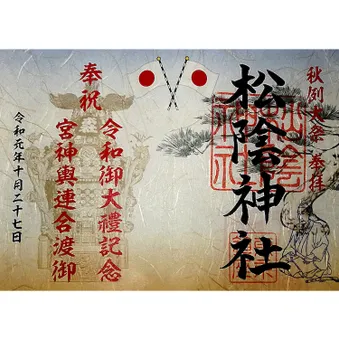 秋例大祭 奉拝
松陰神社
奉祝
令和御大禮記念
宮神輿連合渡御
令和元年十月二十七日